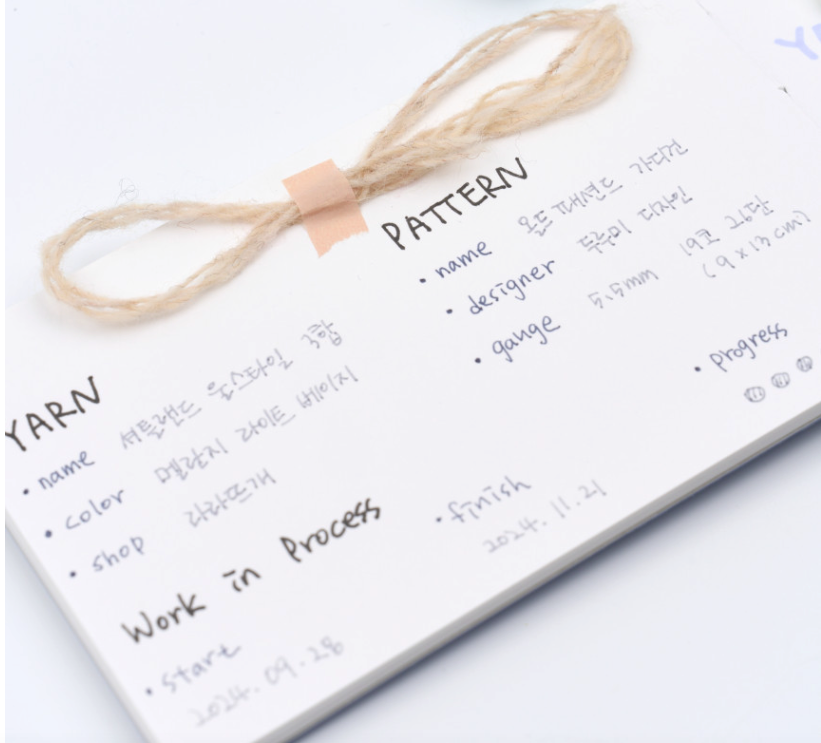 PATTERN
• name 올드패션드 가디건
• designer 두루미 디자인
• gauge 5.5mm 19코 26단
(9 x 13 cm)
• progress
YARN
• name 셔틀랜드 울스타일 3합
• color 멜란지 라이트 베이지
• shop 라라뜨개
Work in Process
• start
2024. 09. 28
• finish
2024. 11. 21